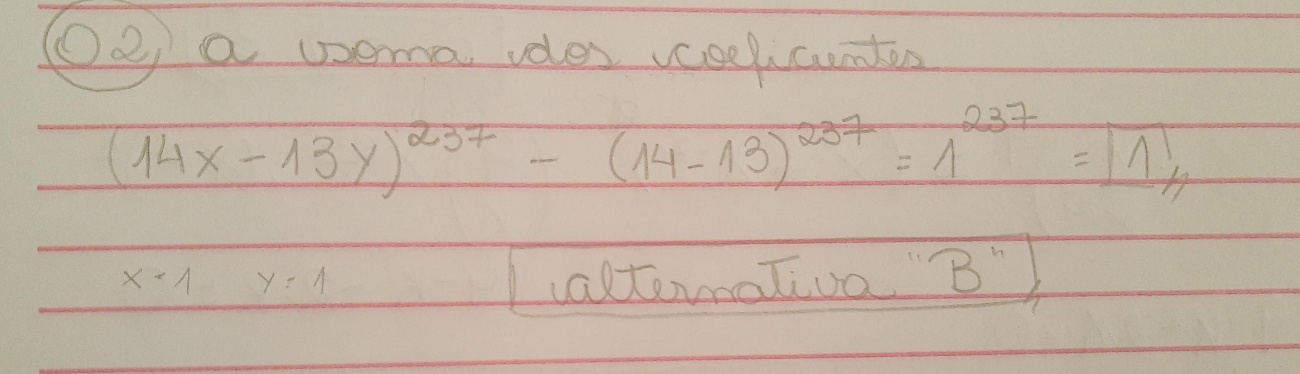 02) a soma dos coeficientes
(14x - 13y)^237 - (14 - 13)^237 = 1^237 = 1,,
x = 1 y = 1 alternativa "B",,